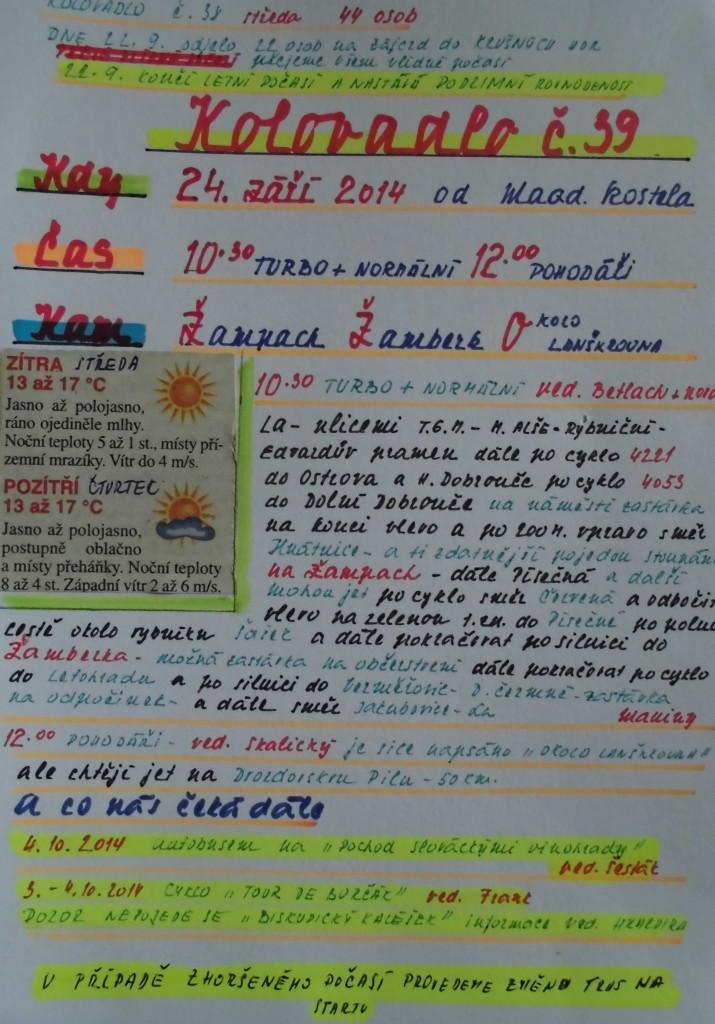 KOLOVADLO č. 38 středa 44 osob
DNE 22. 9. odjelo 22 osob na zájezd do KRUŠNÝCH HOR
přejeme všem vlídné počasí
22. 9. KONČÍ LETNÍ POČASÍ A NASTÁVÁ PODZIMNÍ ROVNODENOST
Kolovadlo č. 39
Kdy 24. září 2014 od Magd. kostela
Čas 10.30 TURBO + NORMÁLNÍ 12.00 POHODÁŘI
Kam Žampach Žamberk O KOLO LANŠKROUNA
ZÍTRA STŘEDA
13 až 17 °C
Jasno až polojasno,
ráno ojediněle mlhy.
Noční teploty 5 až 1 st., místy pří-
zemní mrazíky. Vítr do 4 m/s.
POZÍTŘÍ ČTVRTEC
13 až 17 °C
Jasno až polojasno,
postupně oblačno
a místy přeháňky. Noční teploty
8 až 4 st. Západní vítr 2 až 6 m/s.
10.30 TURBO + NORMÁLNÍ ved. Betlach +
La - ulicemi T.G.M. - M. ALŠE - Rybniční -
Edvardův pramen dále po cyklo 4221
do Ostrova a H. Dobrouče po cyklo 4053
do Dolní Dobrouče na náměstí zastávka
na konci vlevo a po 200 M. vpravo směr
Hnátnice - a ti zdatnější pojedou
na Žampach - dále Písečná a další
mohou jet po cyklo směr Červená a odbočit
vlevo na zelenou t.zn. do Písečné po
cestě okolo rybníku a dále pokračovat po silnici do
Žamberka - možná zastávka na občerstvení dále pokračovat po cyklo
do Letohradu a po silnici do Verměřovic - D. Čermné - zastávka
na odpočinek - a dále směr Jakubovice - La
12.00 POHODÁŘI - ved. Skalický je sice napsáno "OKOLO LANŠKROUNA"
ale chtějí jet na Drozdovskou Pilu - 50 km.
A co nás čeká dále
4. 10. 2014 autobusem na "Pochod slováckými vinohrady"
ved. Šesták
3. - 4. 10. 2014 CYKLO "TOUR DE BURČÁK" ved. Frank
POZOR NEPOJEDE SE "BISKUPICKÝ KALÍŠEK" informace ved.
V PŘÍPADĚ ZHORŠENÉHO POČASÍ PROVEDEME ZMĚNU TRAS NA
STARTU